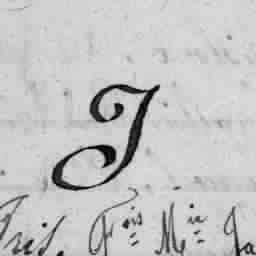 J
Fris. F.ois M.ie Ja